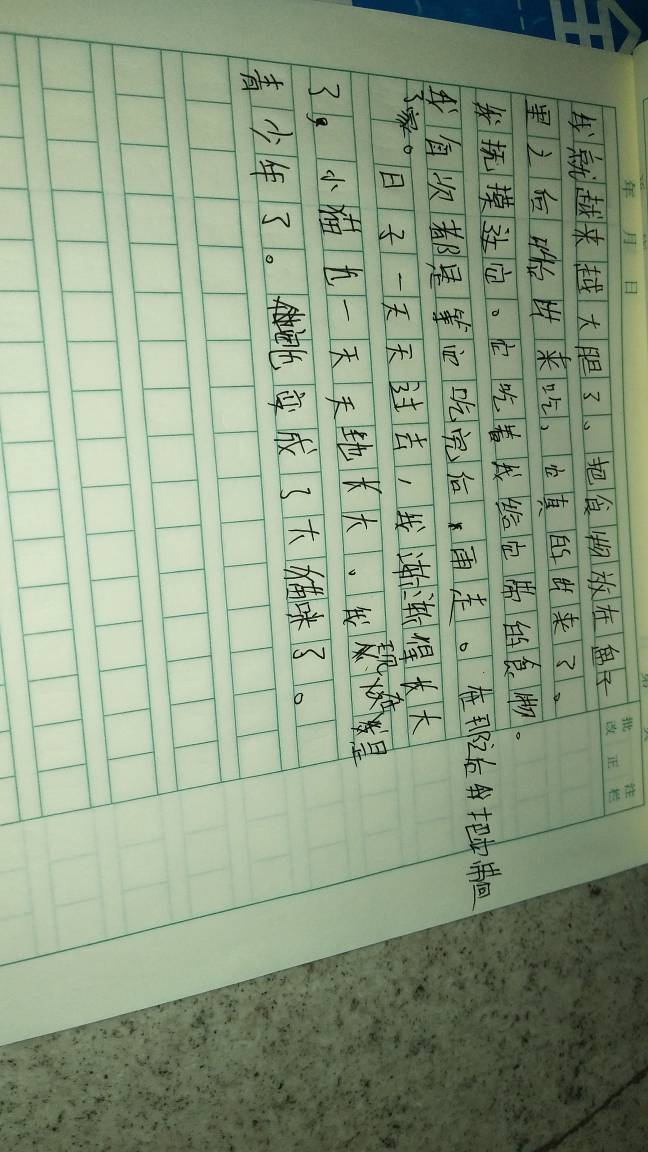 年 月 日
批改 注正栏
我就越来越大胆了、把食物放在盒子
里之后唤它出来吃、它真的出来了。
我抚摸这它。它吃着我给它带的食物。
我每次都是等它吃完后,再走。在那之后我把它带回
了家。
日子一天天过去,我渐渐得长大
了,小猫也一天天地长大。我
青少年了。 也变成了大猫咪了。